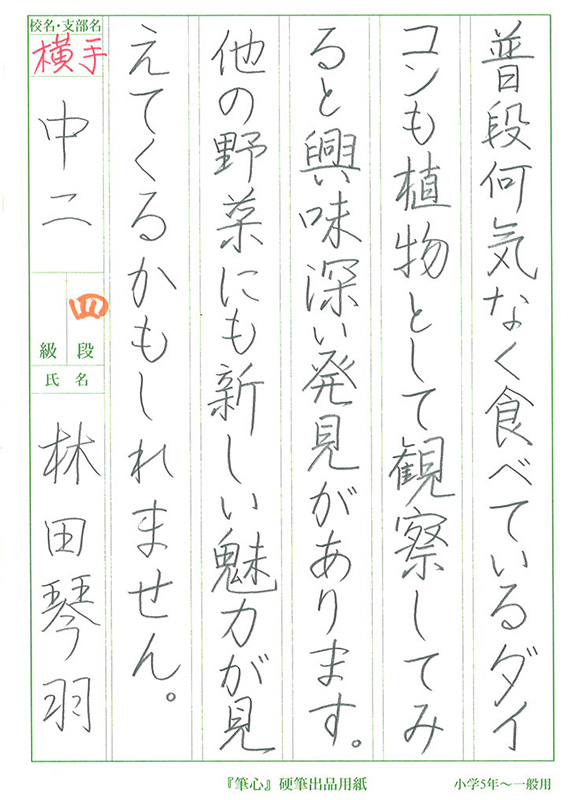 普段何気なく食べているダイ
コンも植物として観察してみ
ると興味深い発見があります。
他の野菜にも新しい魅力が見
えてくるかもしれません。
校名・支部名
横手
中二
四
級 段
氏 名
林田琴羽
『筆心』硬筆出品用紙
小学5年〜一般用